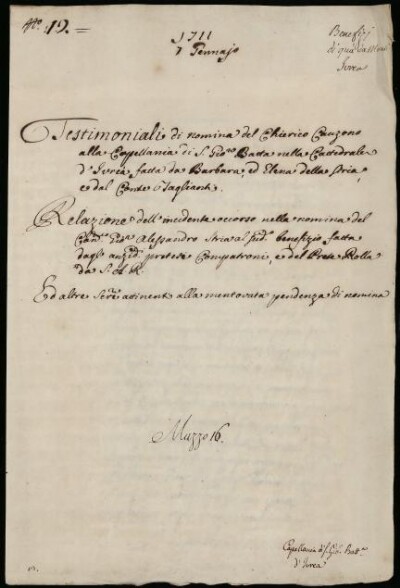 N.º 12.=
1711
7 Gennajo
Benefizj
di quà da Monti
Ivrea
Testimoniali di nomina del Chierico Canzono
alla Cappellania di S. Gio. Batta nella Cattedrale
d'Ivrea fatta da Barbara, ed Elena della Stria,
e dal Conte Tagliant.
Relazione dell'incidente occorso nella nomina del
Alessandro Stria al sud. benefizio fatta
dagl' anzid. pretesi Compatroni, e del Prete Rolla
da S. A. R.
Ed altre Scre attinenti alla mentovata pendenza di nomina
Mazzo 16.
Capellania di S. Gio. Batt.a
d'Ivrea